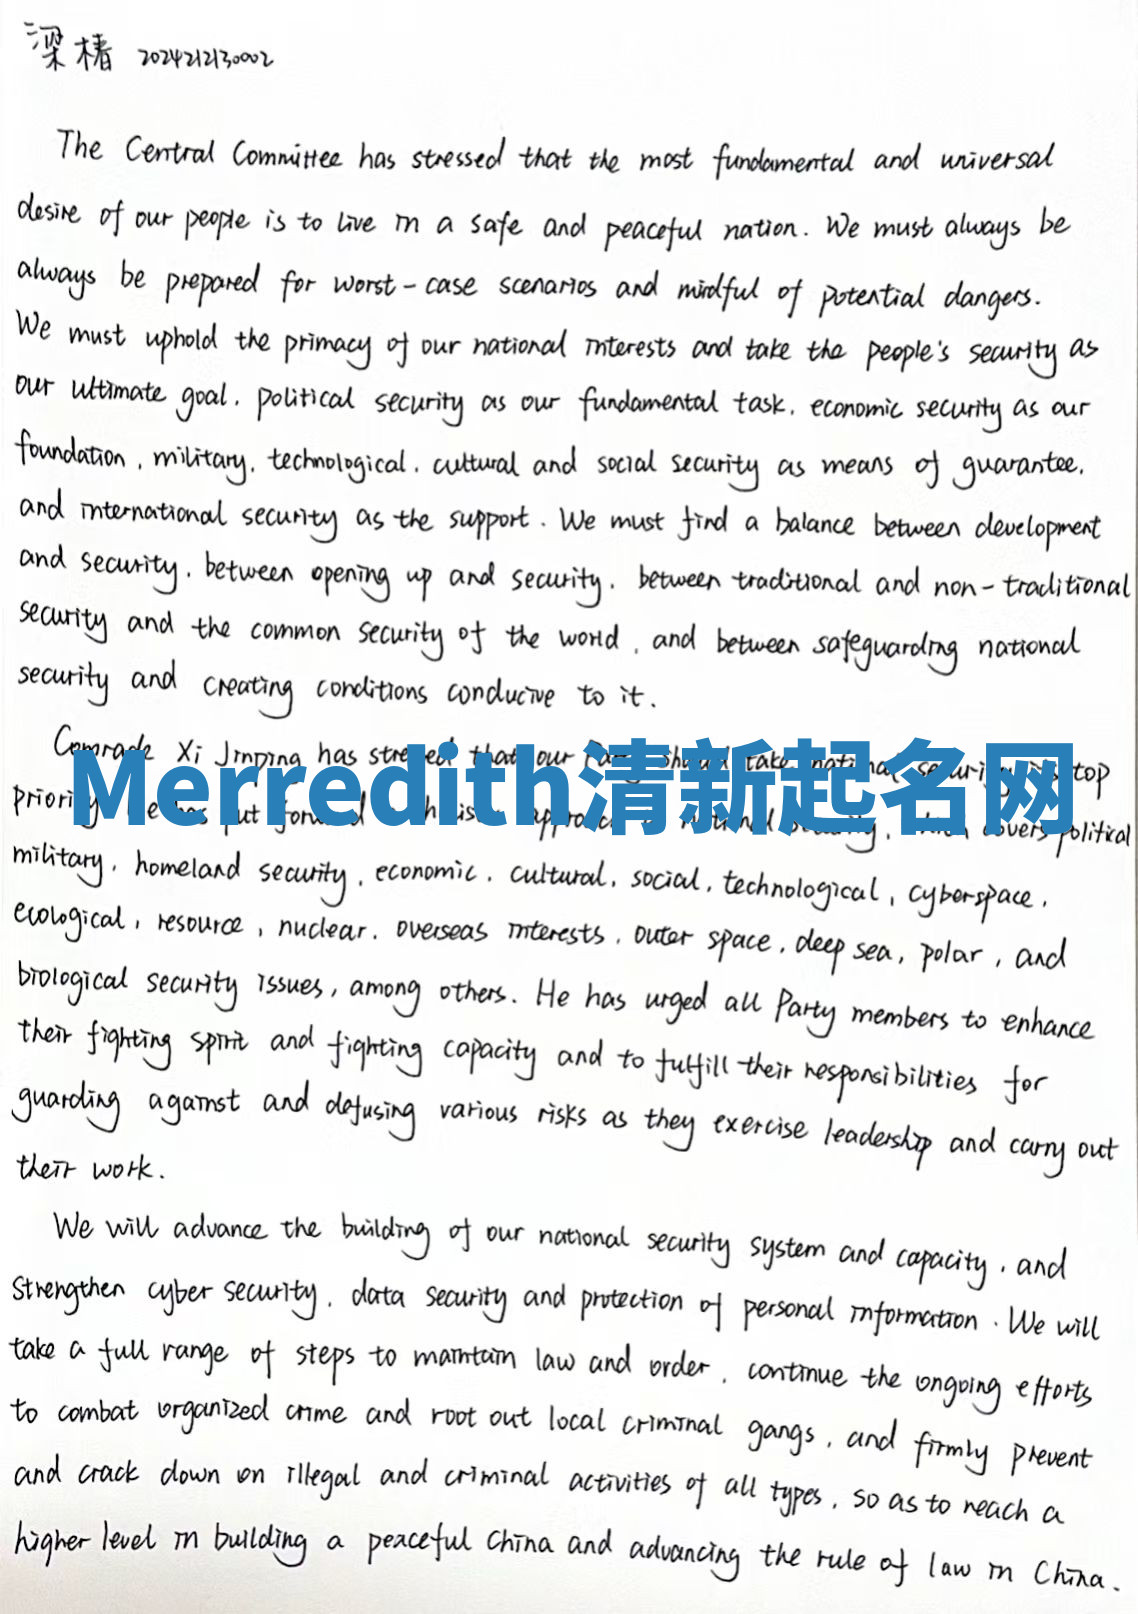 梁椿 2024212130002
The Central Committee has stressed that the most fundamental and universal
desire of our people is to live in a safe and peaceful nation. We must always be
always be prepared for worst-case scenarios and mindful of potential dangers.
We must uphold the primacy of our national interests and take the people's security as
our ultimate goal, political security as our fundamental task, economic security as our
foundation, military, technological, cultural and social security as means of guarantee,
and international security as the support. We must find a balance between development
and security, between opening up and security, between traditional and non-traditional
security and the common security of the world, and between safeguarding national
security and creating conditions conducive to it.
Comrade Xi Jinping has stressed that our Party should take national security as top
Merredith清新起名网
priority. He has put forward a holistic approach to national security, which covers political
military, homeland security, economic, cultural, social, technological, cyberspace,
ecological, resource, nuclear, overseas interests, outer space, deep sea, polar, and
biological security issues, among others. He has urged all Party members to enhance
their fighting spirit and fighting capacity and to fulfill their responsibilities for
guarding against and defusing various risks as they exercise leadership and carry out
their work.
We will advance the building of our national security system and capacity, and
strengthen cyber security, data security and protection of personal information. We will
take a full range of steps to maintain law and order, continue the ongoing efforts
to combat organized crime and root out local criminal gangs, and firmly prevent
and crack down on illegal and criminal activities of all types, so as to reach a
higher level in building a peaceful China and advancing the rule of law in China.